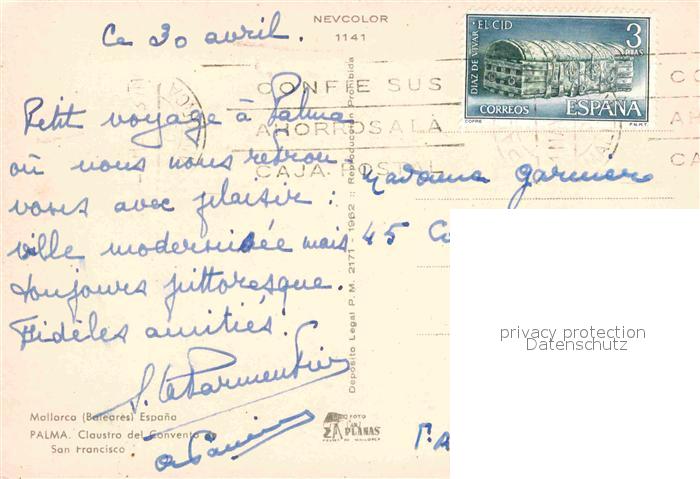 NEVCOLOR
1141
Ce 30 avril.
EL CID
DIAZ DE VIVAR
3
PTAS
CORREOS
ESPAÑA
COFRE
F.N.M.T.
CONFIE SUS
AHORROS A LA
CAJA POSTAL
Petit voyage à Palma
où nous nous retrou-
vons avec plaisir :
ville modernisée mais
toujours pittoresque.
Fidèles amitiés.
Madame Garnier
45
privacy protection
Datenschutz
Depósito Legal P. M. 2171 - 1962 - Reproducción Prohibida
Mallorca (Baleares) España
PALMA. Claustro del Convento
San Francisco
FOTO
PLANAS